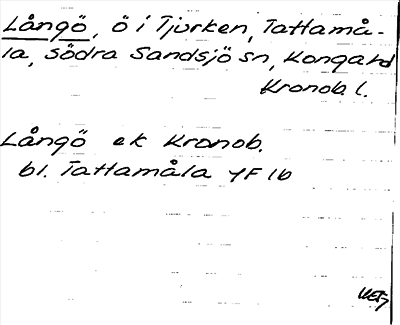 Långö, ö i Tjurken, Tattamå-
la, södra Sandsjö sn, Konga hd
Kronob l.
Långö ek Kronob.
bl. Tattamåla YF lb